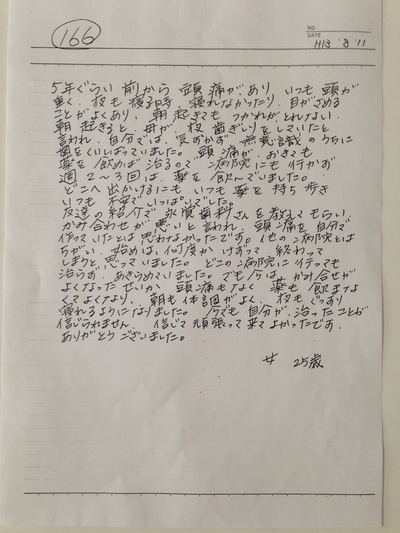 166
NO.
DATE H13 '8 '11
5年ぐらい前から頭痛があり、いつも頭が
重く、夜も寝る時、寝れなかったり、目がさめる
ことがよくあり、朝起きてもつかれがとれない。
朝起きると、母が、夜歯ぎしりをしていたと
言われ、自分では、気ずかず無意識のうちに
歯をくいしばっていました。頭痛が、おきても
薬を飲めば治るので病院にも行かず
週2~3回は、薬を飲んでいました。
どこへ出かけるにもいつも薬を持ち歩き
いつも不安でいっぱいでした。
友達の紹介で歯科さんを教えてもらい、
かみ合わせが悪いと言われ、頭痛を自分で
作っていたとは思わなかったです。他の病院とは
ちがい、始めは、何度かけずって終わって
しまうと思っていました。どこの病院に行っても
治らず、あきらめていました。でも今は、かみ合せが
よくなったせいか頭痛もなく薬も飲まなて
くてよくなり、朝も体調がよく、夜もぐっすり
寝れるようになりました。今でも自分が、治ったことが
信じられません。信じて頑張って来てよかったです。
ありがとうございました。
女 25歳